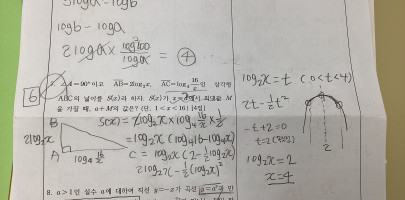 logb - loga
④
6
A=90°이고 AB=2log₂x, AC=log₄ 16/x 인 삼각형
ABC의 넓이를 S(x)라 하자. S(x)가 x=a에서 최댓값 M
을 가질 때, a+M의 값은? (단, 1<x<16) [4점]
S(x) = 2log₂x × log₄ 16/x × 1/2
= log₂x (log₄16 - log₄x)
= log₂x (2 - 1/2 log₂x)
2log₂x - 1/2 (log₂x)²
B
2log₂x
A
log₄ 16/x
C
log₂x = t (0<t<4)
2t - 1/2 t²
-t+2=0
t=2
2
log₂x = 2
x=4
8. a>1인 실수 a에 대하여 직선 y=-x가 곡선